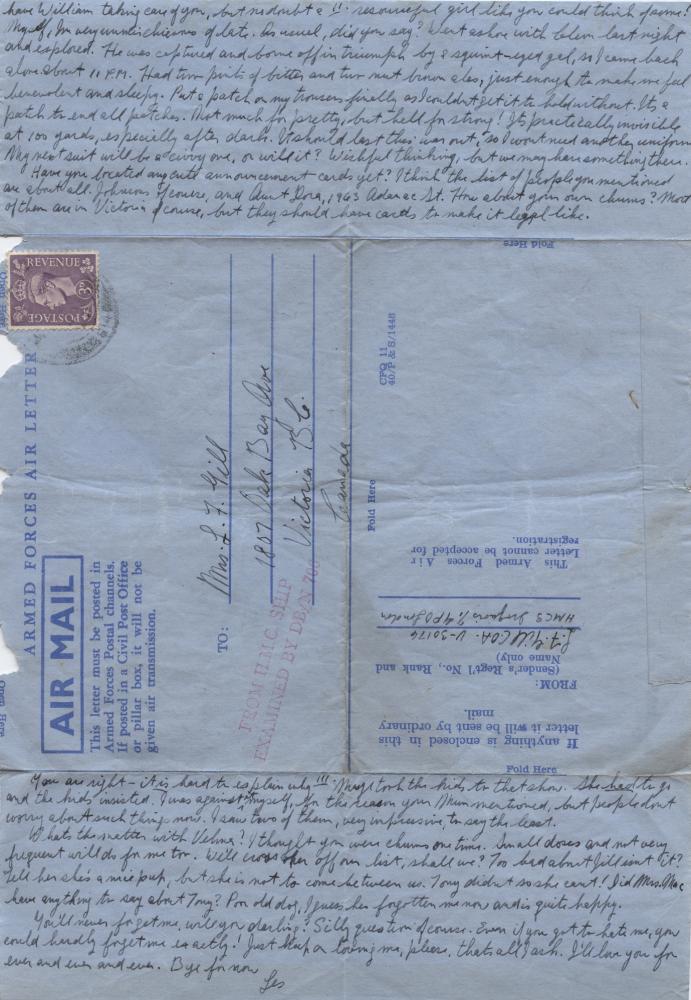 have William taking care of you, but no doubt a !! resourceful girl like you could think of some!
Myself, I'm very unmischievous of late. As usual, did you say? Went ashore with Clem last night
and explored. He was captured and borne off in triumph by a squint-eyed gal, so I came back
alone about 11 P.M. Had two pints of bitter and two nut brown ales, just enough to make me feel
benevolent and sleepy. Put a patch on my trousers finally as I couldn't get it to hold without. It's a
patch to end all patches. Not much for pretty, but hell for strong! It's practically invisible
at 100 yards, especially after dark. It should last this war out, so I won't need another uniform
My next suit will be a civvy one, or will it? Wishful thinking, but we may have something there.
Have you located any cute announcement cards yet? I think the list of people you mentioned
are about all. Johnsons of course, and Aunt Dora, 1963 Adanac St. How about your own chums? Most
of them are in Victoria of course, but they should have cards to make it legal like.
Fold Here
Open Here
REVENUE
3D
POSTAGE
ARMED FORCES AIR LETTER
AIR MAIL
This letter must be posted in
Armed Forces Postal channels.
If posted in a Civil Post Office
or pillar box, it will not be
given air transmission.
TO:
Mrs. L. F. Gill
1807 Oak Bay Ave
Victoria B.C.
Canada
FROM H.M.C. SHIP
EXAMINED BY DB/N 700
CFQ 11
40/P & S/1448
Fold Here
This Armed Forces Air
Letter cannot be accepted for
registration.
HMCS Iroquois G.P.O. London
L.F. Gill V-30174
FROM:
(Sender's Regt'l No., Rank and
Name only)
If anything is enclosed in this
letter it will be sent by ordinary
mail.
Fold Here
Open Here
You are right - it is hard to explain why !!! Muge took the kids to that show. She had to go
and the kids insisted. I was against it myself, for the reason your Mum mentioned, but people don't
worry about such things now. I saw two of them, very impressive, to say the least.
What's the matter with Velma? I thought you were chums one time. Small doses and not very
frequent will do for me too. We'll cross her off our list, shall we? Too bad about Jill isn't it?
Tell her she's a nice pup, but she is not to come between us. Tony didn't so she can't! Did Mrs. Mac
have anything to say about Tony? Poor old dog, I guess he's forgotten me now and is quite happy.
You'll never forget me, will you darling? Silly question of course. Even if you got to hate me, you
could hardly forget me exactly! Just keep on loving me, please, that's all I ask. I'll love you for
ever and ever and ever. Bye for now
Les